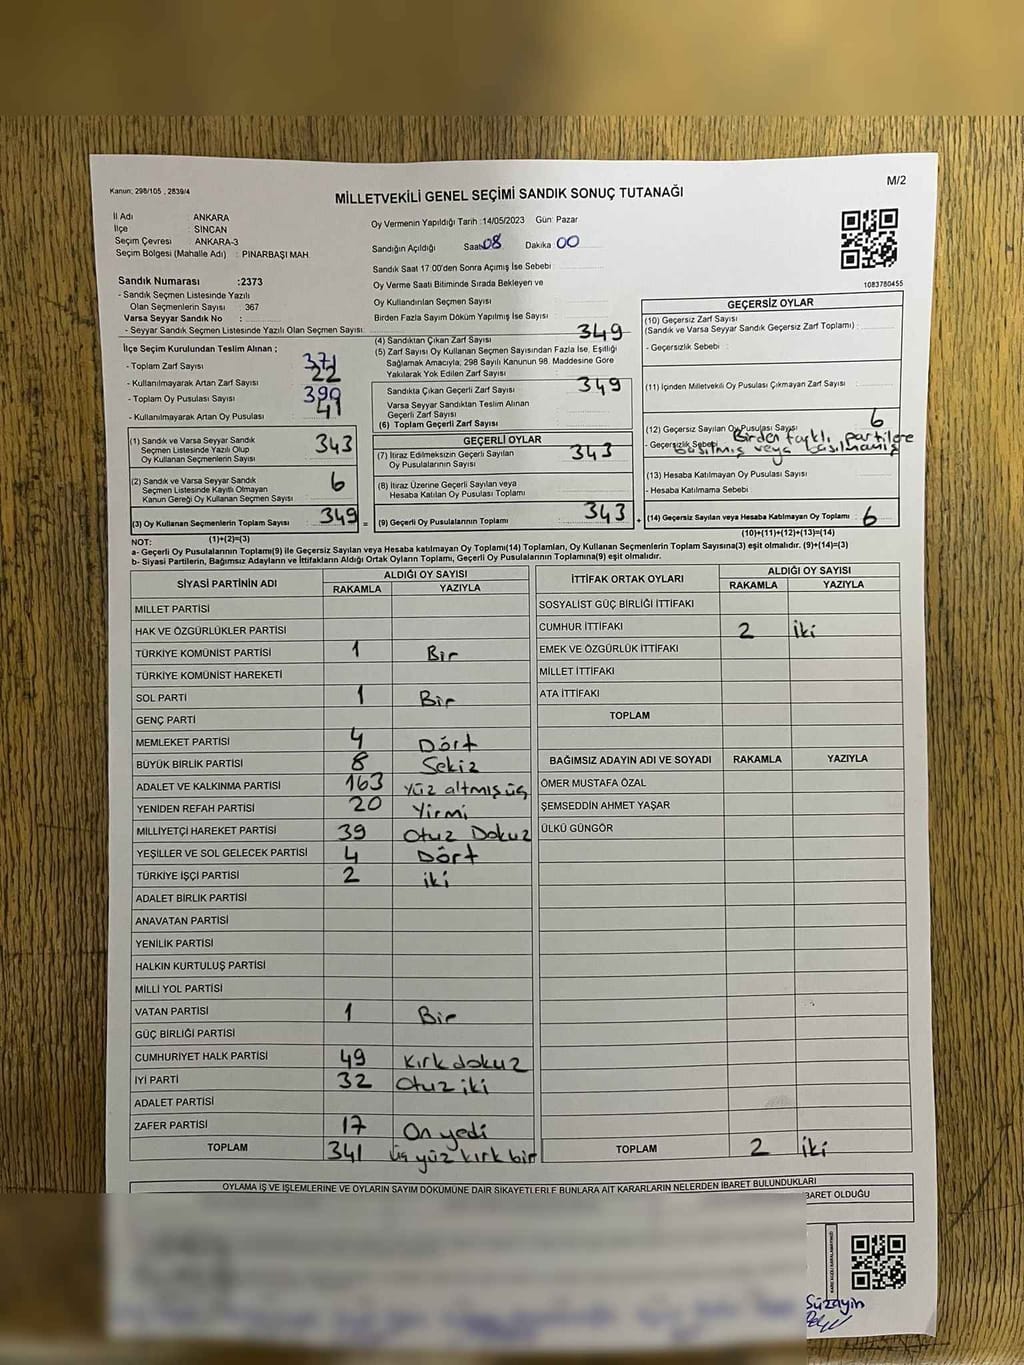 Kanun; 298/105 , 2839/4
MİLLETVEKİLİ GENEL SEÇİMİ SANDIK SONUÇ TUTANAĞI
M/2
İl Adı : ANKARA
İlçe SİNCAN
Seçim Çevresi : ANKARA-3
Seçim Bölgesi (Mahalle Adı) : PINARBAŞI MAH.
Oy Vermenin Yapıldığı Tarih :14/05/2023 Gün: Pazar
Sandığın Açıldığı Saat 08 Dakika 00
Sandık Saat 17:00'den Sonra Açımış İse Sebebi :
Oy Verme Saati Bitiminde Sırada Bekleyen ve
Oy Kullandırılan Seçmen Sayısı
Birden Fazla Sayım Döküm Yapılmış İse Sayısı :
1083780455
Sandık Numarası :2373
- Sandık Seçmen Listesinde Yazılı
Olan Seçmenlerin Sayısı : 367
Varsa Seyyar Sandık No :
- Seyyar Sandık Seçmen Listesinde Yazılı Olan Seçmen Sayısı:
İlçe Seçim Kurulundan Teslim Alınan ;
- Toplam Zarf Sayısı : 371
- Kullanılmayarak Artan Zarf Sayısı : 22
- Toplam Oy Pusulası Sayısı : 390
- Kullanılmayarak Artan Oy Pusulası : 41
(1) Sandık ve Varsa Seyyar Sandık
Seçmen Listesinde Yazılı Olup
Oy Kullanan Seçmenlerin Sayısı : 343
(2) Sandık ve Varsa Seyyar Sandık
Seçmen Listesinde Kayıtlı Olmayan
Kanun Gereği Oy Kullanan Seçmen Sayısı : 6
(3) Oy Kullanan Seçmenlerin Toplam Sayısı : 349 =
(1)+(2)=(3)
(4) Sandıktan Çıkan Zarf Sayısı 349
(5) Zarf Sayısı Oy Kullanan Seçmen Sayısından Fazla İse, Eşitliği
Sağlamak Amacıyla; 298 Sayılı Kanunun 98. Maddesine Göre
Yakılarak Yok Edilen Zarf Sayısı :
Sandıkta Çıkan Geçerli Zarf Sayısı : 349
Varsa Seyyar Sandıktan Teslim Alınan
Geçerli Zarf Sayısı :
(6) Toplam Geçerli Zarf Sayısı :
GEÇERLİ OYLAR
(7) İtiraz Edilmeksizin Geçerli Sayılan
Oy Pusulalarının Sayısı : 343
(8) İtiraz Üzerine Geçerli Sayılan veya
Hesaba Katılan Oy Pusulası Toplamı :
(9) Geçerli Oy Pusulalarının Toplamı : 343 +
GEÇERSİZ OYLAR
(10) Geçersiz Zarf Sayısı
(Sandık ve Varsa Seyyar Sandık Geçersiz Zarf Toplamı) :
- Geçersizlik Sebebi :
(11) İçinden Milletvekili Oy Pusulası Çıkmayan Zarf Sayısı :
(12) Geçersiz Sayılan Oy Pusulası Sayısı : 6
- Geçersizlik Sebebi : Birden farklı partilere
basılmış veya basılmamış
(13) Hesaba Katılmayan Oy Pusulası Sayısı :
- Hesaba Katılmama Sebebi :
(14) Geçersiz Sayılan veya Hesaba Katılmayan Oy Toplamı : 6
(10)+(11)+(12)+(13)=(14)
NOT:
a- Geçerli Oy Pusulalarının Toplamı(9) ile Geçersiz Sayılan veya Hesaba katılmayan Oy Toplamı(14) Toplamları, Oy Kullanan Seçmenlerin Toplam Sayısına(3) eşit olmalıdır. (9)+(14)=(3)
b- Siyasi Partilerin, Bağımsız Adayların ve İttifakların Aldığı Ortak Oyların Toplamı, Geçerli Oy Pusulalarının Toplamına(9) eşit olmalıdır.
SİYASİ PARTİNİN ADI ALDIĞI OY SAYISI
RAKAMLA YAZIYLA
MİLLET PARTİSİ
HAK VE ÖZGÜRLÜKLER PARTİSİ
TÜRKİYE KOMÜNİST PARTİSİ 1 Bir
TÜRKİYE KOMÜNİST HAREKETİ
SOL PARTİ 1 Bir
GENÇ PARTİ
MEMLEKET PARTİSİ 4 Dört
BÜYÜK BİRLİK PARTİSİ 8 Sekiz
ADALET VE KALKINMA PARTİSİ 163 Yüz altmış üç
YENİDEN REFAH PARTİSİ 20 Yirmi
MİLLİYETÇİ HAREKET PARTİSİ 39 Otuz Dokuz
YEŞİLLER VE SOL GELECEK PARTİSİ 4 Dört
TÜRKİYE İŞÇİ PARTİSİ 2 iki
ADALET BİRLİK PARTİSİ
ANAVATAN PARTİSİ
YENİLİK PARTİSİ
HALKIN KURTULUŞ PARTİSİ
MİLLİ YOL PARTİSİ
VATAN PARTİSİ 1 Bir
GÜÇ BİRLİĞİ PARTİSİ
CUMHURİYET HALK PARTİSİ 49 Kırk dokuz
İYİ PARTİ 32 Otuz iki
ADALET PARTİSİ
ZAFER PARTİSİ 17 On yedi
TOPLAM 341 üç yüz kırk bir
İTTİFAK ORTAK OYLARI ALDIĞI OY SAYISI
RAKAMLA YAZIYLA
SOSYALİST GÜÇ BİRLİĞİ İTTİFAKI
CUMHUR İTTİFAKI 2 iki
EMEK VE ÖZGÜRLÜK İTTİFAKI
MİLLET İTTİFAKI
ATA İTTİFAKI
TOPLAM
BAĞIMSIZ ADAYIN ADI VE SOYADI RAKAMLA YAZIYLA
ÖMER MUSTAFA ÖZAL
ŞEMSEDDİN AHMET YAŞAR
ÜLKÜ GÜNGÖR
TOPLAM 2 iki
OYLAMA İŞ VE İŞLEMLERİNE VE OYLARIN SAYIM DÖKÜMÜNE DAİR ŞİKAYETLERLE BUNLARA AİT KARARLARIN NELERDEN İBARET BULUNDUKLARI
BARET OLDUĞU